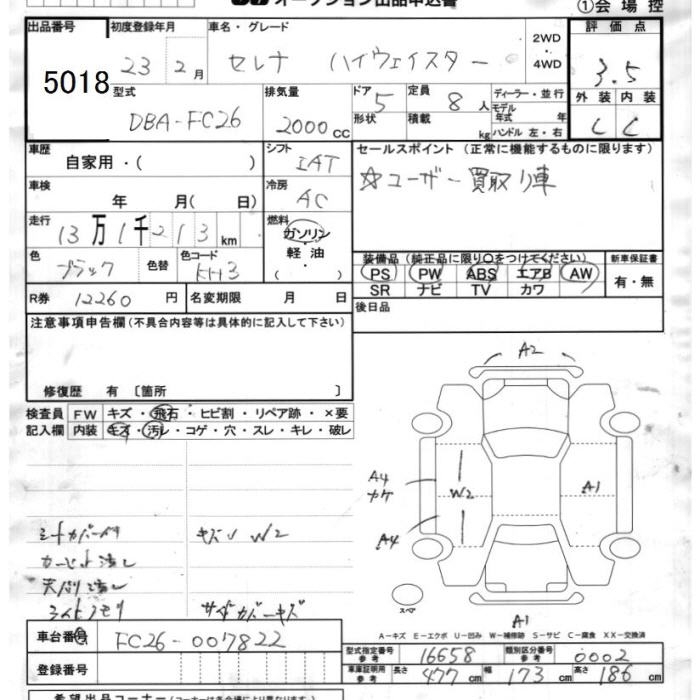 オークション出品申込書
①会場控
出品番号 初度登録年月 車名・グレード 評価点
5018 23 2月 セレナ ハイウェイスター 2WD・4WD 3.5
型式 排気量 ドア 5 定員 8人 ディーラー・並行 外装 内装
DBA-FC26 2000cc 形状 積載 kg モデル年式 年 ハンドル 左・右 C C
車歴 シフト セールスポイント (正常に機能するものに限ります)
自家用・( ) IAT
☆ユーザー買取り車
車検 冷房
年 月( 日) AC
走行 燃料
13万1千213km ガソリン・軽油・( )
色 色替 色コード
ブラック KH3
装備品(純正品に限り○をつけてください) 新車保証書
PS PW ABS エアB AW 有・無
SR ナビ TV カワ
R券 12260円 名変期限 月 日 後日品
注意事項申告欄(不具合内容等は具体的に記入して下さい)
修復歴 有 〔箇所 〕
検査員 FW キズ・飛石・ヒビ割・リペア跡・×要
記入欄 内装 キズ・汚レ・コゲ・穴・スレ・キレ・破レ
A2
A4 カケ
W2
A1
A4
シートカバー
キズ W2
天張り
サイドカバーキズ
スペア
A1
A-キズ E-エクボ U-凹み W-補修跡 S-サビ C-腐食 XX-交換済
車台番号 FC26-007822
型式指定番号 参考 16658 類別区分番号 参考 0002
登録番号 車庫証明用 参考 長さ 477cm 幅 173cm 高さ 186cm
希望出品コーナー